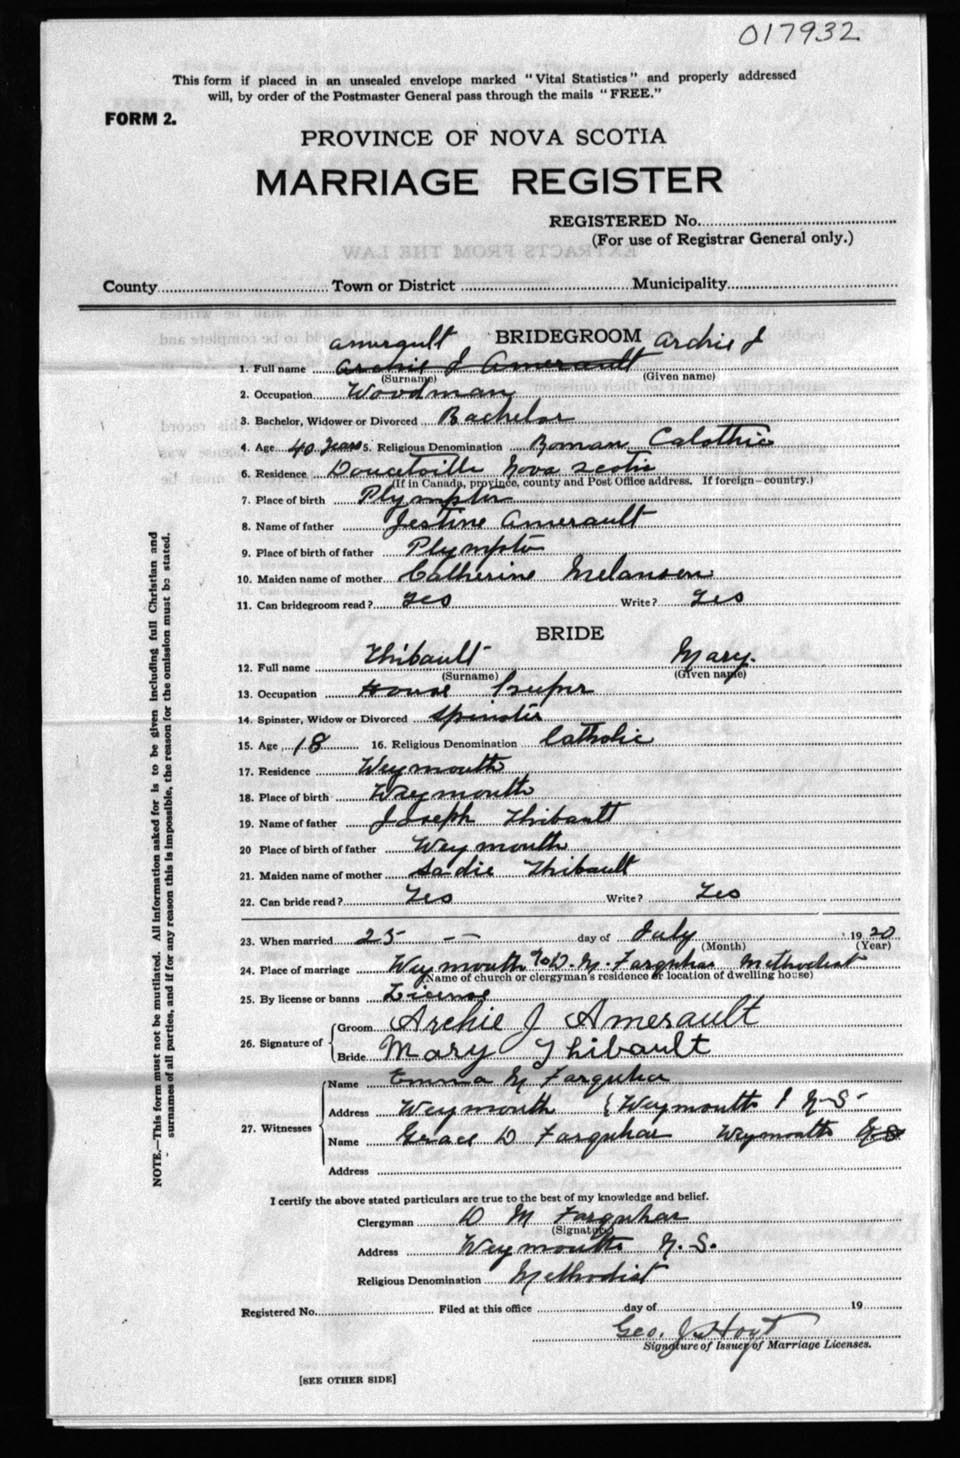 017932
This form if placed in an unsealed envelope marked "Vital Statistics" and properly addressed
will, by order of the Postmaster General pass through the mails "FREE."
FORM 2.
PROVINCE OF NOVA SCOTIA
MARRIAGE REGISTER
REGISTERED No.
(For use of Registrar General only.)
County Town or District Municipality
BRIDEGROOM
Amerault Archie J
1. Full name Archie J Amerault
(Surname) (Given name)
2. Occupation Woodman
3. Bachelor, Widower or Divorced Bachelor
4. Age 40 years 5. Religious Denomination Roman Catothic
6. Residence Doucetville Nova Scotia
(If in Canada, province, county and Post Office address. If foreign—country.)
7. Place of birth Plympton
8. Name of father Jestine Amerault
9. Place of birth of father Plympton
10. Maiden name of mother Catherine Melanson
11. Can bridegroom read? Yes Write? Yes
BRIDE
12. Full name Thibault Mary.
(Surname) (Given name)
13. Occupation House Keeper
14. Spinster, Widow or Divorced Spinster
15. Age 18 16. Religious Denomination Catholic
17. Residence Weymouth
18. Place of birth Weymouth
19. Name of father Joseph Thibault
20 Place of birth of father Weymouth
21. Maiden name of mother Sadie Thibault
22. Can bride read? Yes Write? Yes
23. When married 25 day of July 1920
(Month) (Year)
24. Place of marriage Weymouth D. M. Farquhar Methodist
(Name of church or clergyman's residence or location of dwelling house)
25. By license or banns License
26. Signature of Groom Archie J Amerault
Bride Mary Thibault
27. Witnesses Name Emma M Farquhar
Address Weymouth Weymouth N-S-
Name Grace D Farquhar Weymouth
Address
I certify the above stated particulars are true to the best of my knowledge and belief.
Clergyman D M Farquhar
(Signature)
Address Weymouth N.S.
Religious Denomination Methodist
Registered No. Filed at this office day of 19
Geo. J Hoyt
Signature of Issuer of Marriage Licenses.
[SEE OTHER SIDE]
NOTE.—This form must not be mutilated. All information asked for is to be given including full Christian and
surnames of all parties, and if for any reason this is impossible, the reason for the omission must be stated.